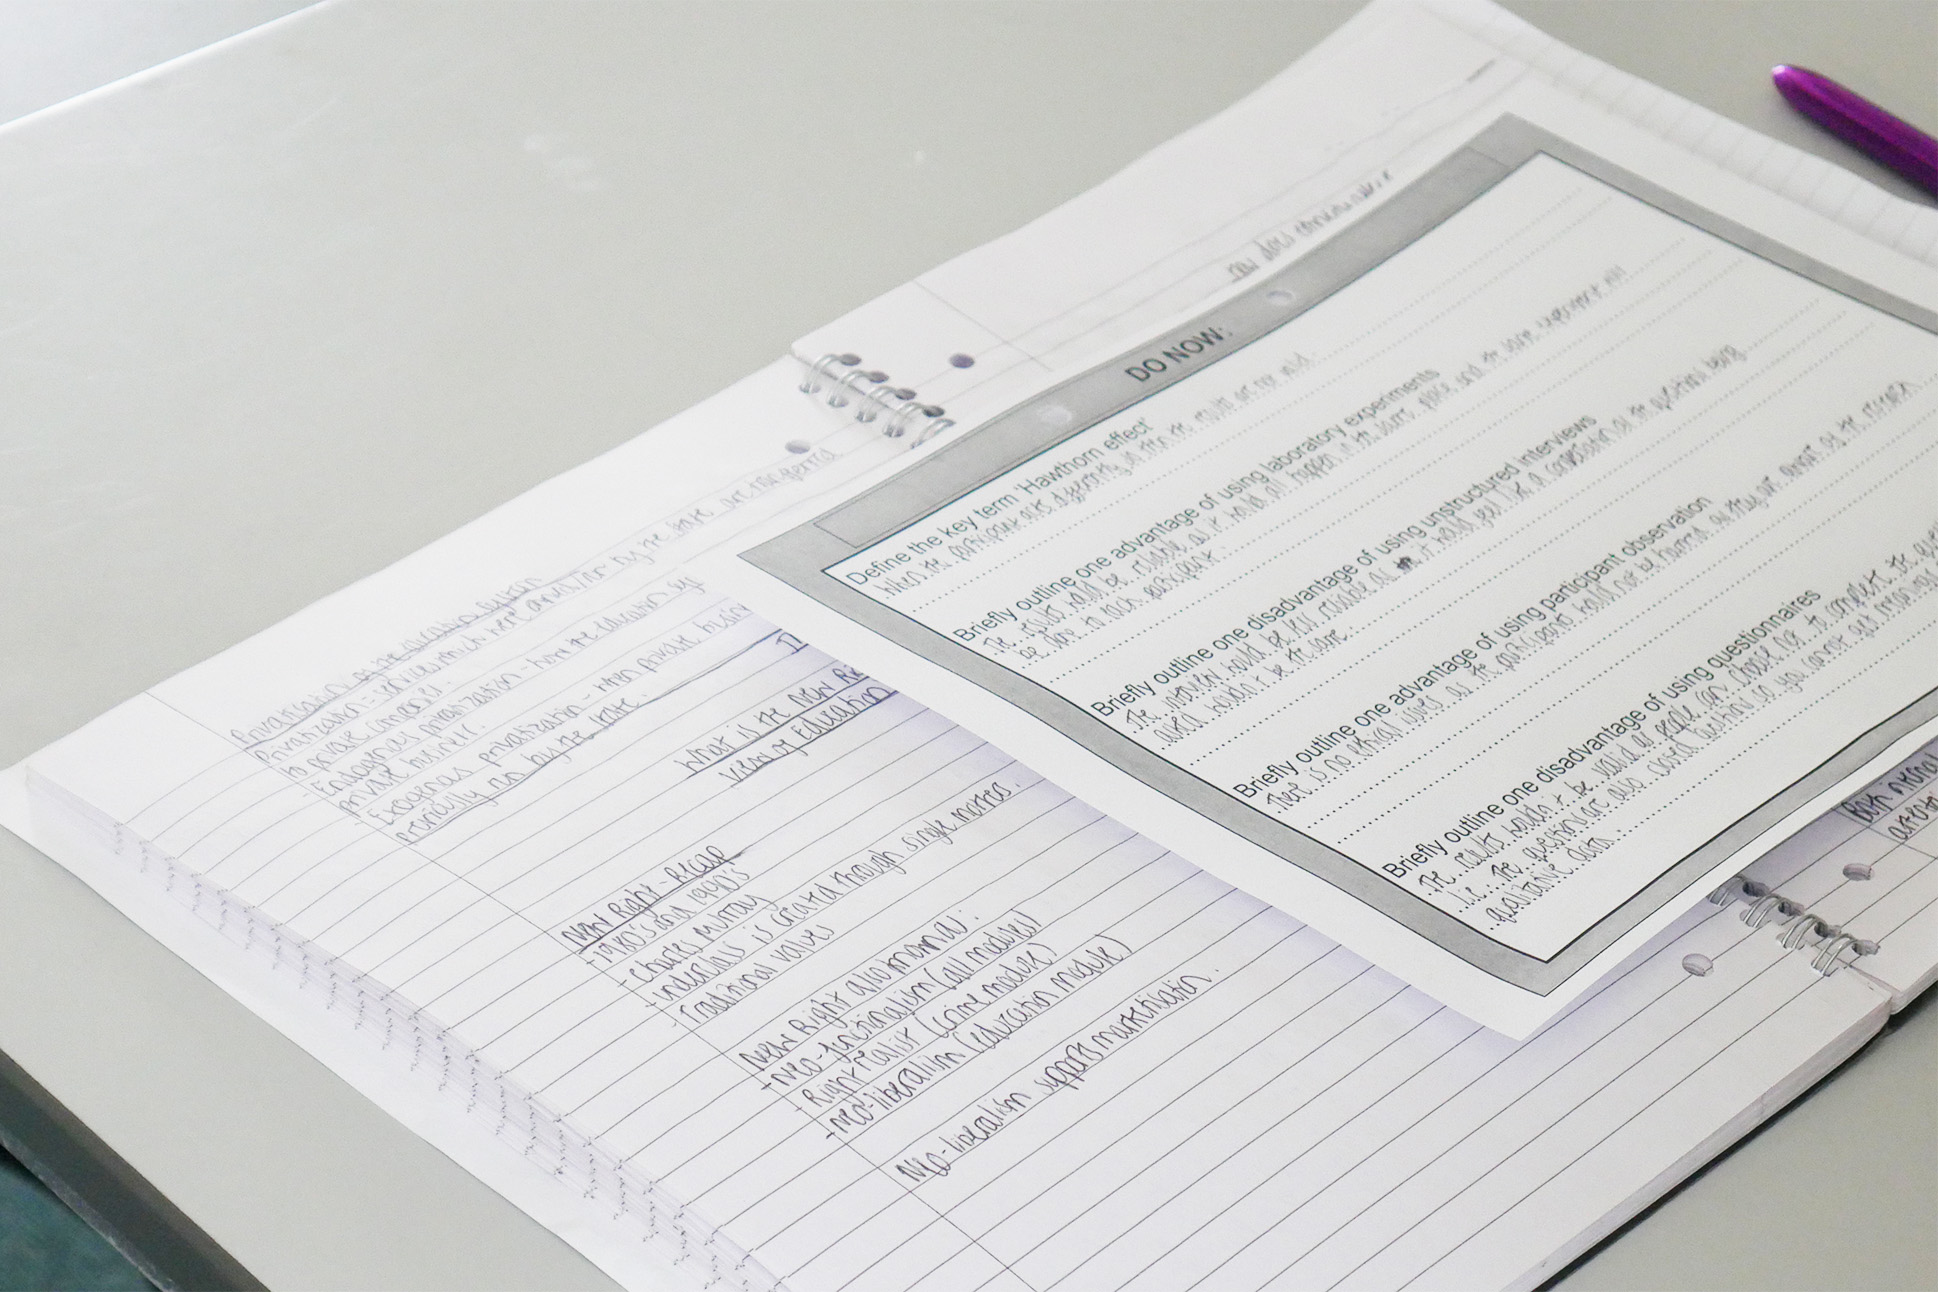 Privatisation of the education system
Privatisation = services which were owned/or by the state are transferred
to private companies.
- Endogenous privatization - how the education by
private business.
- Exogenous privatization - when private busin
Privately run by the state.
What is the New Ri
View of Education
New Right - Recap
- 1980's and 1990's
- Charles Murray
- underclass is created through single mothers.
- Traditional values
New Right also known as:
- neo-functionalism (all modules)
- Right realist (crime module)
- neo-liberalism (education module)
Neo-liberalism supports marketisation.
how does
DO NOW:
Define the key term 'Hawthorn effect'
When the participant acts differently so then the results are not valid
Briefly outline one advantage of using laboratory experiments
The results would be reliable as it would all happen in the same place and the same experiment will
be done to each participant.
Briefly outline one disadvantage of using unstructured interviews
The interview would be less reliable as it would feel like a conversation as the questions being
asked wouldn't be the same.
Briefly outline one advantage of using participant observation
There is no ethical issues as the participants would not be harmed as they are aware of the research
Briefly outline one disadvantage of using questionnaires
The results wouldn't be valid as people can choose not to complete the
i.e. The questions are also closed questions so you cannot get meanings
qualitative data.
Both